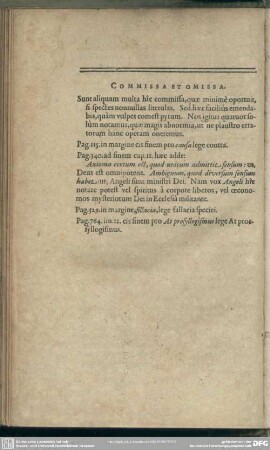 COMMISSA ET OMISSA.
Sunt aliquam multa hîc commissa, quæ minimè oportuit,
si spectes nonnullas literulas. Sed hæc facilius emenda-
bis, quàm vulpes comest pyrum. Nos igitur quatuor so-
lùm notamus, quæ magis abnormia, ut ne plaustro erra-
torum hanc operam oneremus.
Pag. 115. in margine cis finem pro causa lege contra.
Pag. 340. ad finem cap. 12. hæc adde:
Axioma certum est, quod unicum admittit sensum: ut,
Deus est omnipotens. Ambiguum, quod diversum sensum
habet, ut, Angeli sunt ministri Dei. Nam vox Angeli hîc
notare potest vel spiritus à corpore liberos, vel œcono-
mos mysteriorum Dei in Ecclesiâ militante.
Pag. 525. in margine fallacia, lege fallacia speciei.
Pag. 764. lin. 12. cis finem pro At prosyllogismus lege At pro-
syllogismus.